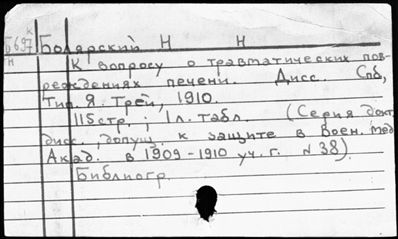 К
Б697 Болярский Н Н
Н К вопросу о травматических пов-
реждениях печени. Дисс. Спб,
Тип. Я. Трей, 1910.
115 стр. ; 1 л. табл. (Серия докт.
дисс., допущ. к защите в Воен. мед.
Акад. в 1909-1910 уч. г. N 38).
Библиогр.